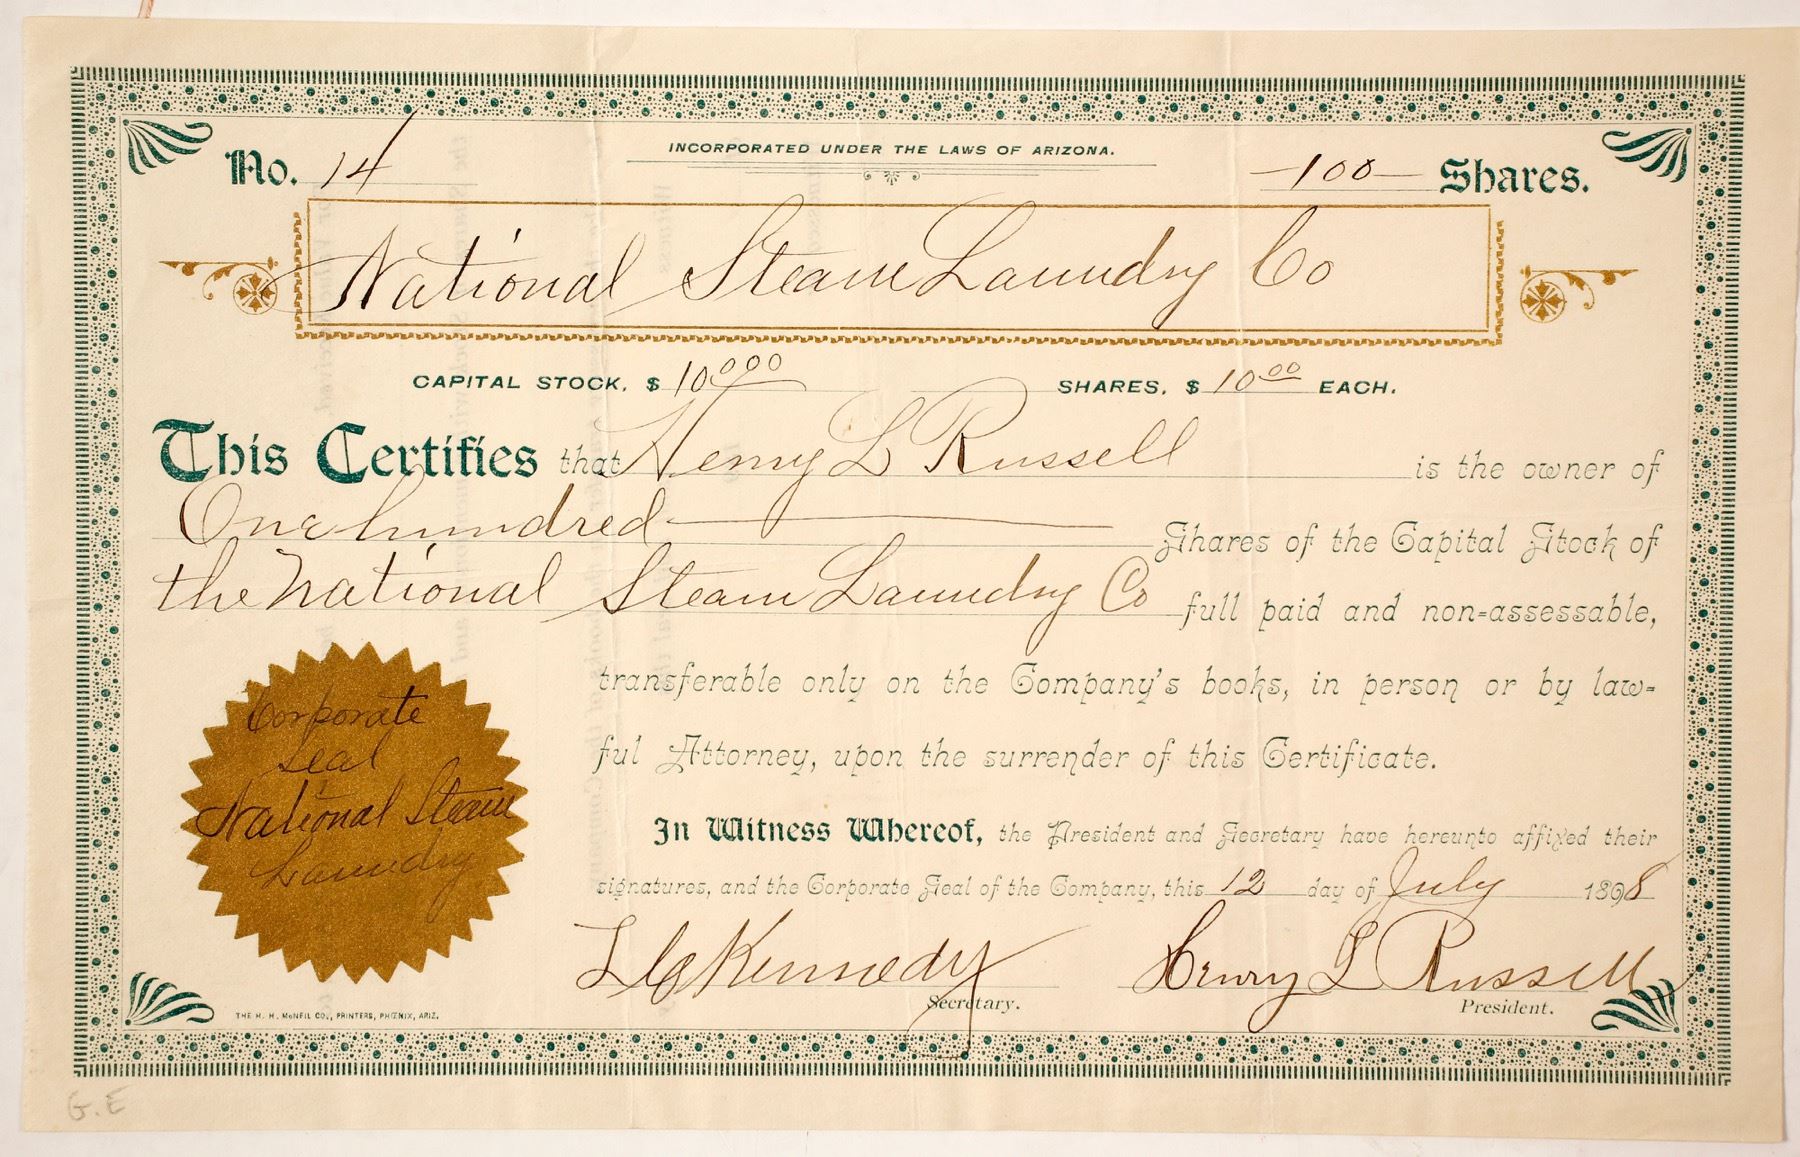 No. 14
INCORPORATED UNDER THE LAWS OF ARIZONA.
-100- Shares.
National Steam Laundry Co
CAPITAL STOCK, $ 10000 SHARES, $ 10.00 EACH.
This Certifies that Henry L Russell is the owner of
One hundred Shares of the Capital Stock of
the National Steam Laundry Co full paid and non=assessable,
transferable only on the Company's books, in person or by law=
ful Attorney, upon the surrender of this Certificate.
Corporate
Seal
National Steam
Laundry
In Witness Whereof, the President and Secretary have hereunto affixed their
signatures, and the Corporate Seal of the Company, this 12 day of July 1898
L C Kennedy Henry L Russell
Secretary. President.
THE H. H. McNEIL CO., PRINTERS, PHŒNIX, ARIZ.
G.E